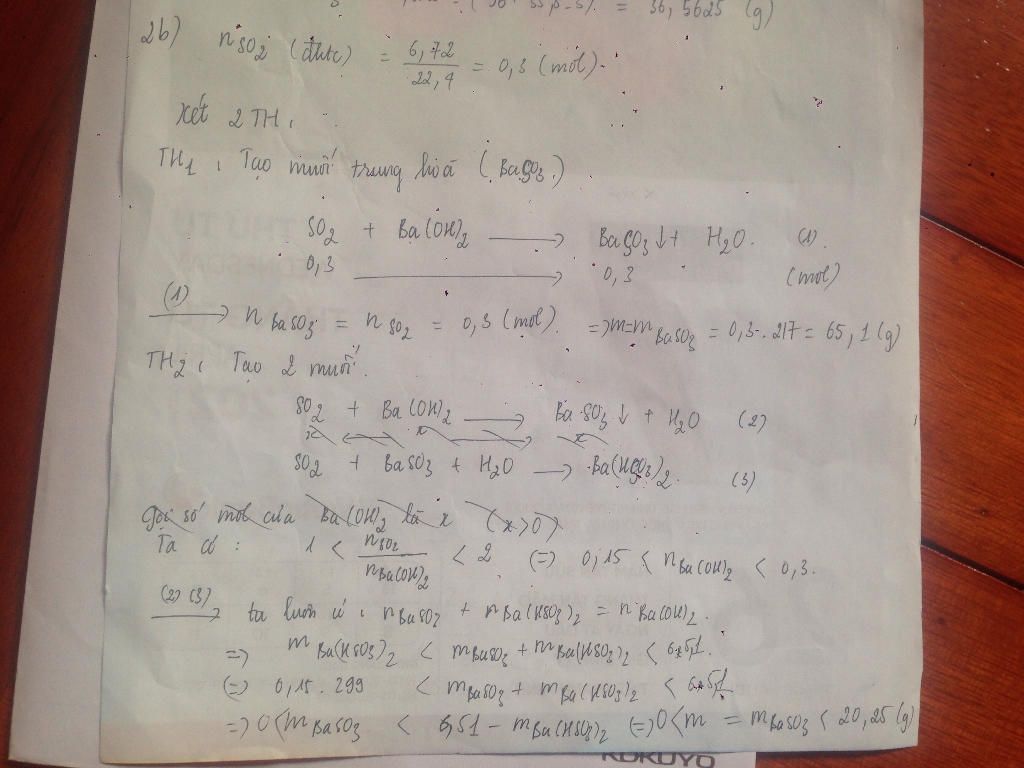 = 36,5625 (g)
2b) n SO2 (đktc) = 6,72 / 22,4 = 0,3 (mol).
Xét 2 TH:
TH1: Tạo muối trung hoà (BaSO3)
SO2 + Ba(OH)2 ⟶ BaSO3↓ + H2O. (1)
0,3 ⟶ 0,3 (mol)
(1) ⟶ n BaSO3 = n SO2 = 0,3 (mol). => m = m BaSO3 = 0,3 . 217 = 65,1 (g)
TH2: Tạo 2 muối.
SO2 + Ba(OH)2 ⟶ BaSO3↓ + H2O (2)
x ⟵ x ⟶ x
SO2 + BaSO3 + H2O ⟶ Ba(HSO3)2. (3)
Gọi số mol của Ba(OH)2 là x (x>0)
Ta có: 1 < nSO2 / nBa(OH)2 < 2 (=) 0,15 < n Ba(OH)2 < 0,3.
(2) (3) ⟶ ta luôn có: n BaSO3 + n Ba(HSO3)2 = n Ba(OH)2.
=> m Ba(HSO3)2 < m BaSO3 + m Ba(HSO3)2 <
(=) 0,15 . 299 < m BaSO3 + m Ba(HSO3)2 <
=> 0 < m BaSO3 < - m Ba(HSO3)2 (=) 0 < m = m BaSO3 < 20,25 (g)
KOKUYO